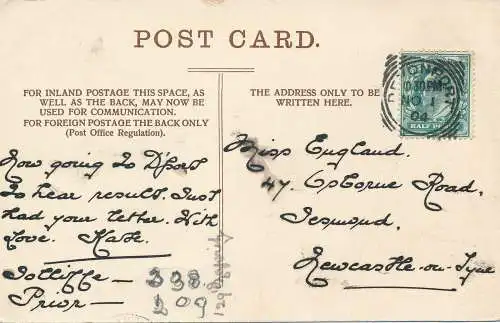 POST CARD.
FOR INLAND POSTAGE THIS SPACE, AS
WELL AS THE BACK, MAY NOW BE
USED FOR COMMUNICATION.
FOR FOREIGN POSTAGE THE BACK ONLY
(Post Office Regulation).
THE ADDRESS ONLY TO BE
WRITTEN HERE.
DEVONPORT
NO 1
04
HALF PENNY
Now going to D'port
to hear result. Just
had your letter. With
Love. Kate.
Jolliffe - 238.
Prior - 209
Miss England.
47. Osborne Road,
Jesmond,
Newcastle-on-Tyne